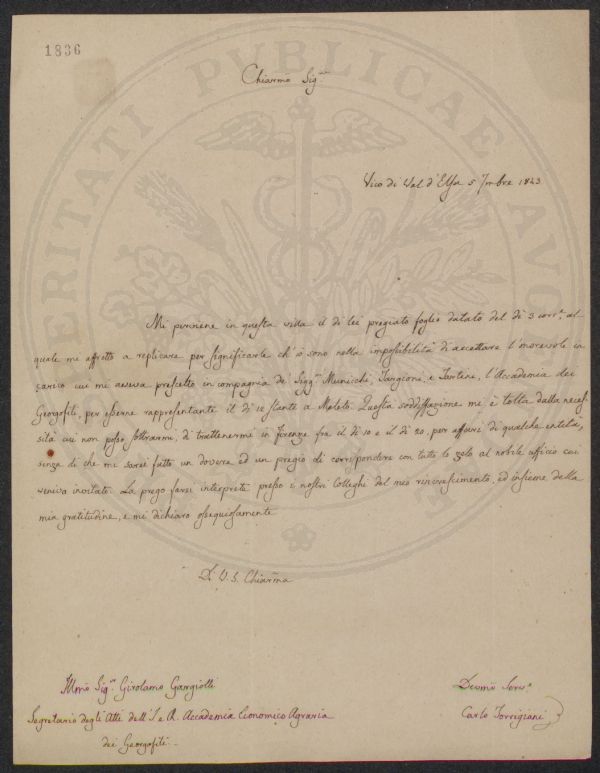 1836
Chiarmo Sig.re
Vico di Val d'Elsa 5 7mbre 1843
Mi perviene in questa villa il di lei pregiato foglio datato del dì 3 corr.e, al
quale mi affretto a replicare per significarle ch'io sono nella impossibilità di accettare l'onorevole in
carico cui mi aveva prescelto in compagnia de' Sigg.ri e Tartini, l'Accademia dei
Georgofili, per esserne rappresentante il dì 12 stante a Meleto. Questa soddisfazione mi è tolta dalla neces
sità cui non posso sottrarmi, di trattenermi in Firenze fra il dì 10 e il dì 20, per affari di qualche entità,
senza di che mi sarei fatto un dovere ed un pregio di corrispondere con tutto lo zelo al nobile ufficio cui
veniva invitato. La prego farsi interprete presso i nostri Colleghi del mio rincrescimento, ed insieme della
mia gratitudine, e mi dichiaro ossequiosamente
Di V. S. Chiarma
Illmo Sig.re Girolamo
Segretario degli Atti dell'I. e R. Accademia Economico Agraria
dei Georgofili
Devmo Serv.e
Carlo Torrigiani
VERITATI PVBLICAE AVO